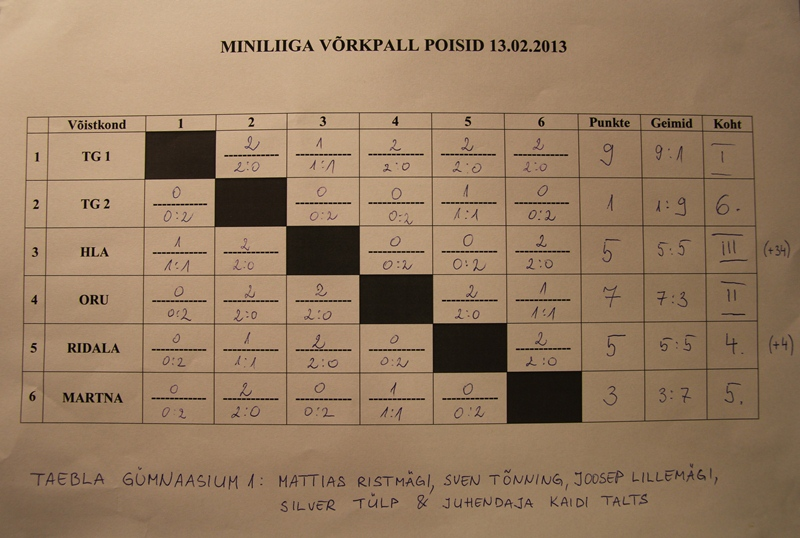 MINILIIGA VÕRKPALL POISID 13.02.2013
Võistkond 1 2 3 4 5 6 Punkte Geimid Koht
1 TG 1 2 1 2 2 2 9 9:1 I
2:0 1:1 2:0 2:0 2:0
2 TG 2 0 0 0 1 0 1 1:9 6.
0:2 0:2 0:2 1:1 0:2
3 HLA 1 2 0 0 2 5 5:5 III (+34)
1:1 2:0 0:2 0:2 2:0
4 ORU 0 2 2 2 1 7 7:3 II
0:2 2:0 2:0 2:0 1:1
5 RIDALA 0 1 2 0 2 5 5:5 4. (+4)
0:2 1:1 2:0 0:2 2:0
6 MARTNA 0 2 0 1 0 3 3:7 5.
0:2 2:0 0:2 1:1 0:2
TAEBLA GÜMNAASIUM 1: MATTIAS RISTMÄGI, SVEN TÕNNING, JOOSEP LILLEMÄGI,
SILVER TÜLP & JUHENDAJA KAIDI TALTS